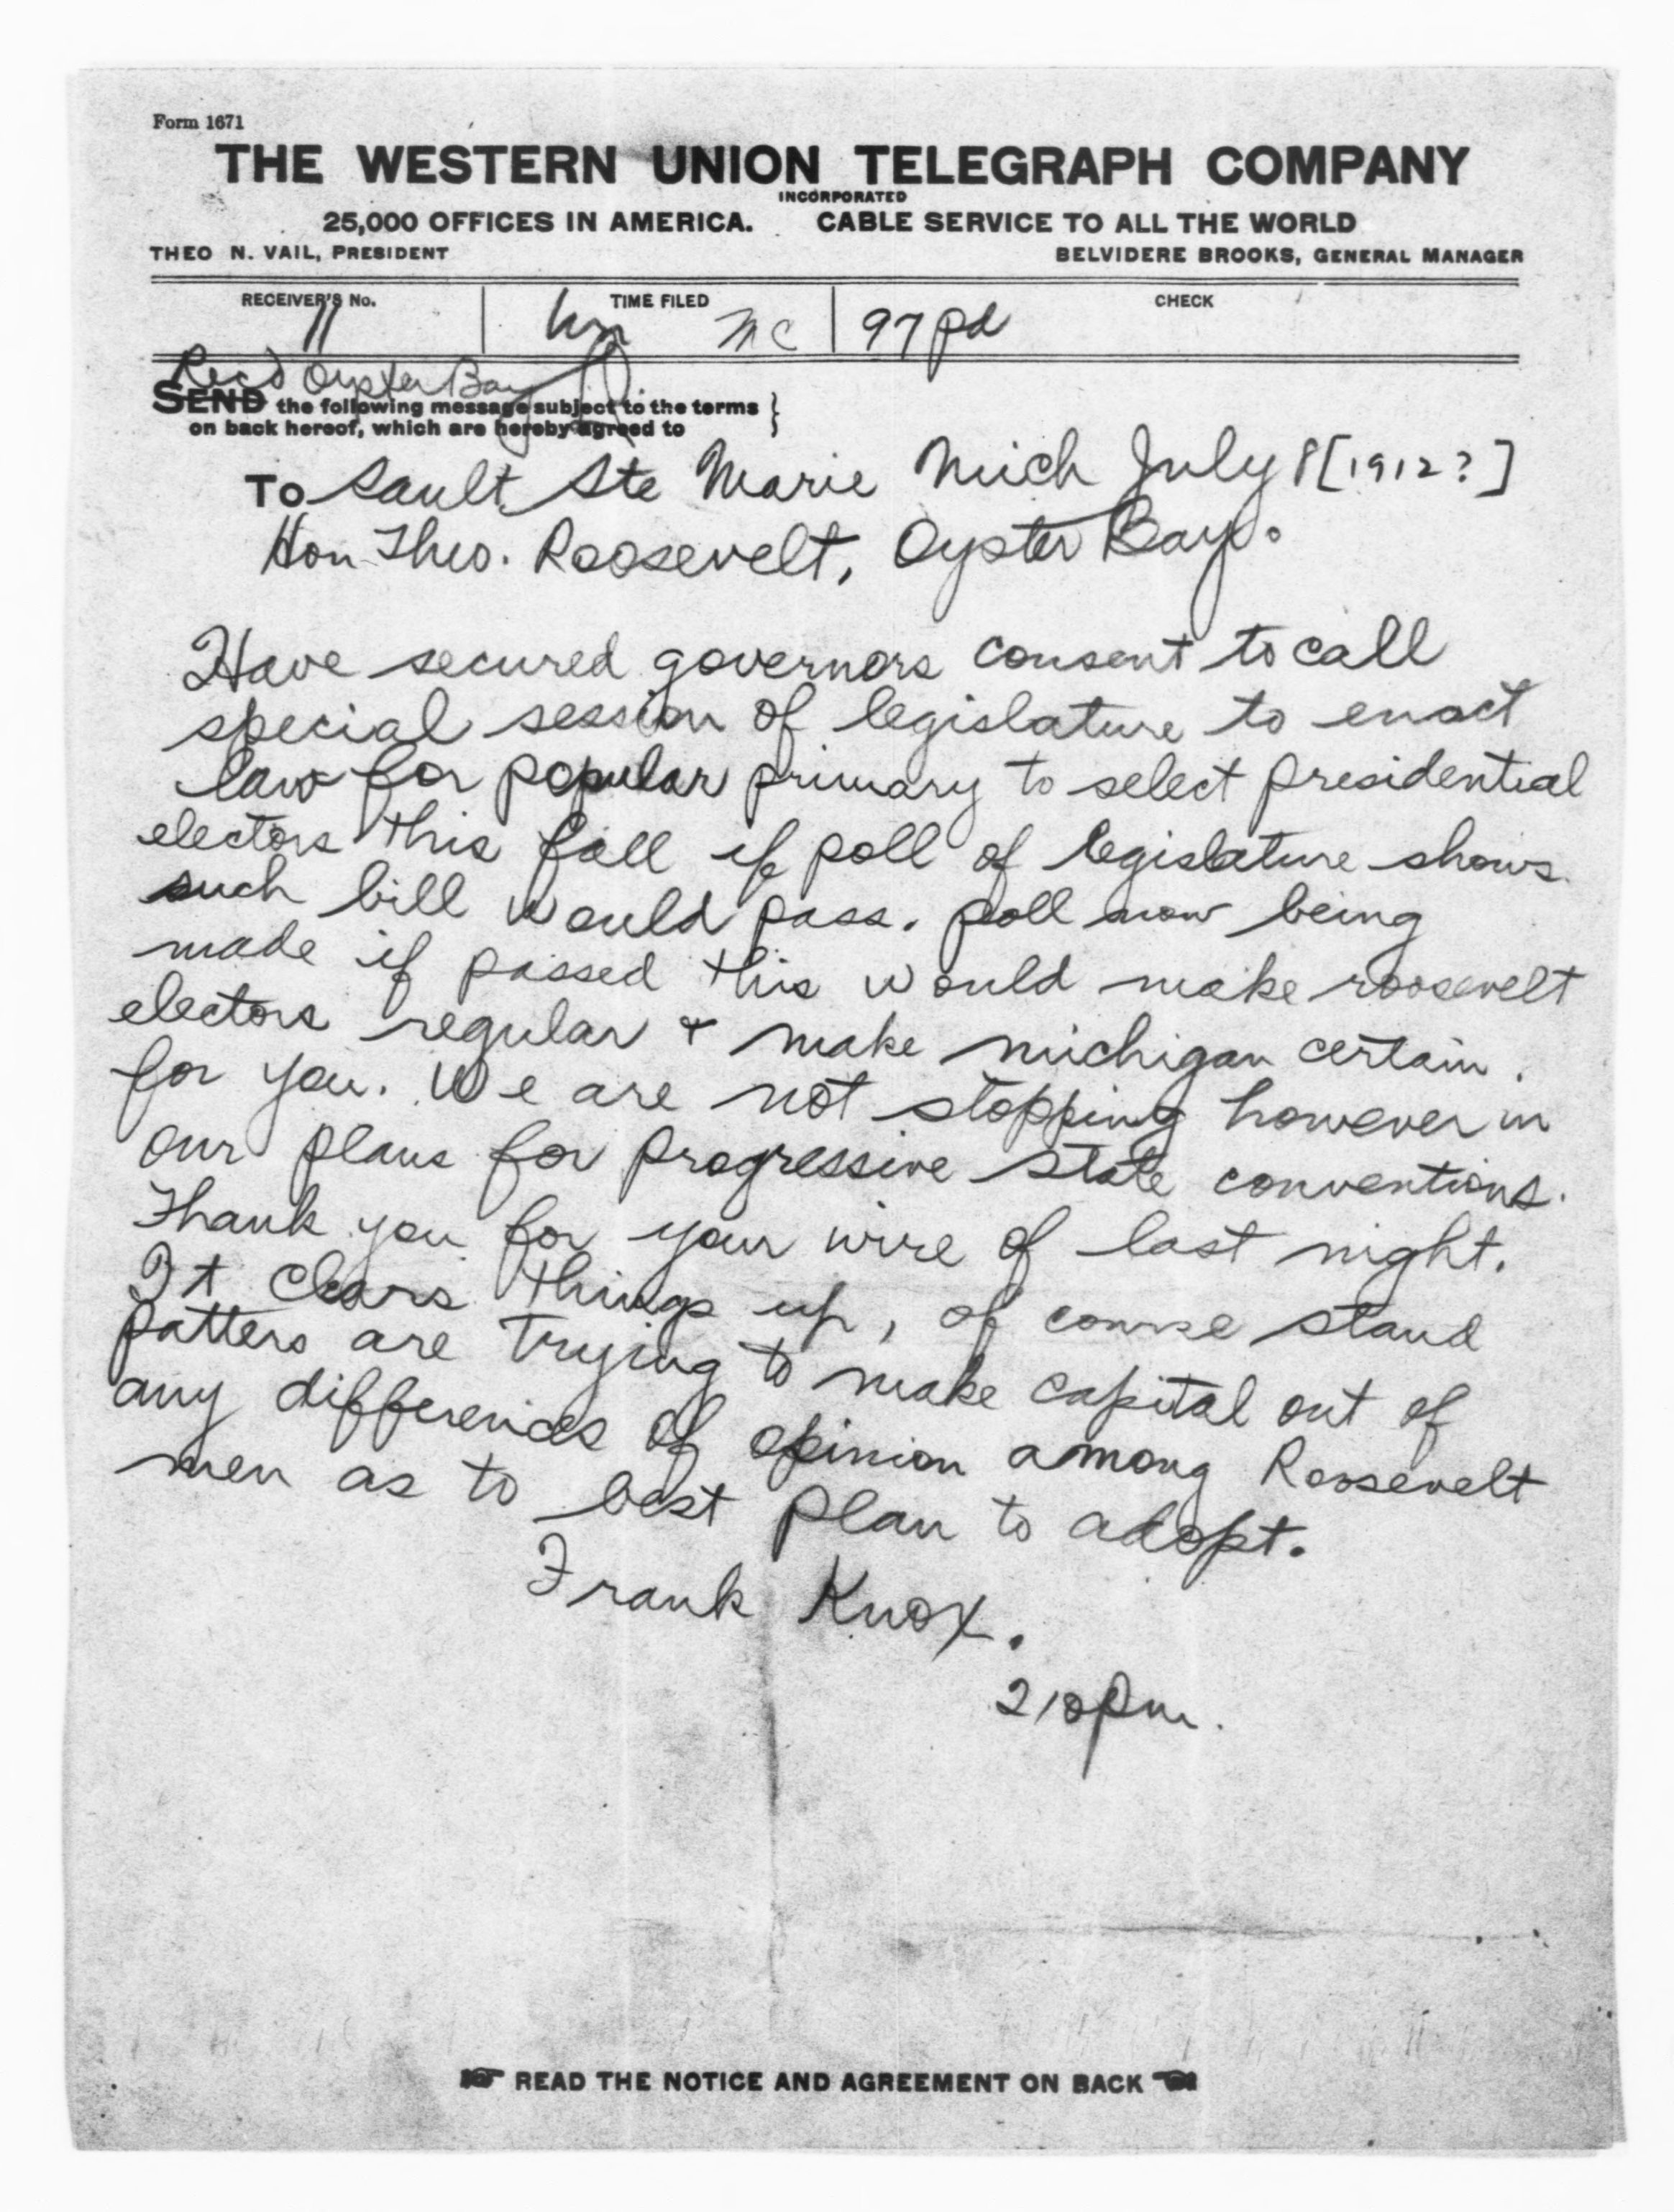 Form 1671
THE WESTERN UNION TELEGRAPH COMPANY
INCORPORATED
25,000 OFFICES IN AMERICA. CABLE SERVICE TO ALL THE WORLD
THEO N. VAIL, PRESIDENT BELVIDERE BROOKS, GENERAL MANAGER
RECEIVER'S No. TIME FILED CHECK
11 97 pd
Recd Oyster Bay
SEND the following message subject to the terms
on back hereof, which are hereby agreed to
To Sault Ste Marie Mich July 8 [1912?]
Hon Theo. Roosevelt, Oyster Bay.
Have secured governors consent to call
special session of legislature to enact
law for popular primary to select presidential
electors this fall if poll of legislature shows
such bill would pass. poll now being
made if passed this would make roosevelt
electors regular + make michigan certain.
for you. We are not stopping however in
our plans for progressive state conventions.
Thank you for your wire of last night.
It clears things up, of course stand
patters are trying to make capital out of
any differences of opinion among Roosevelt
men as to best plan to adopt.
Frank Knox.
210 pm.
READ THE NOTICE AND AGREEMENT ON BACK